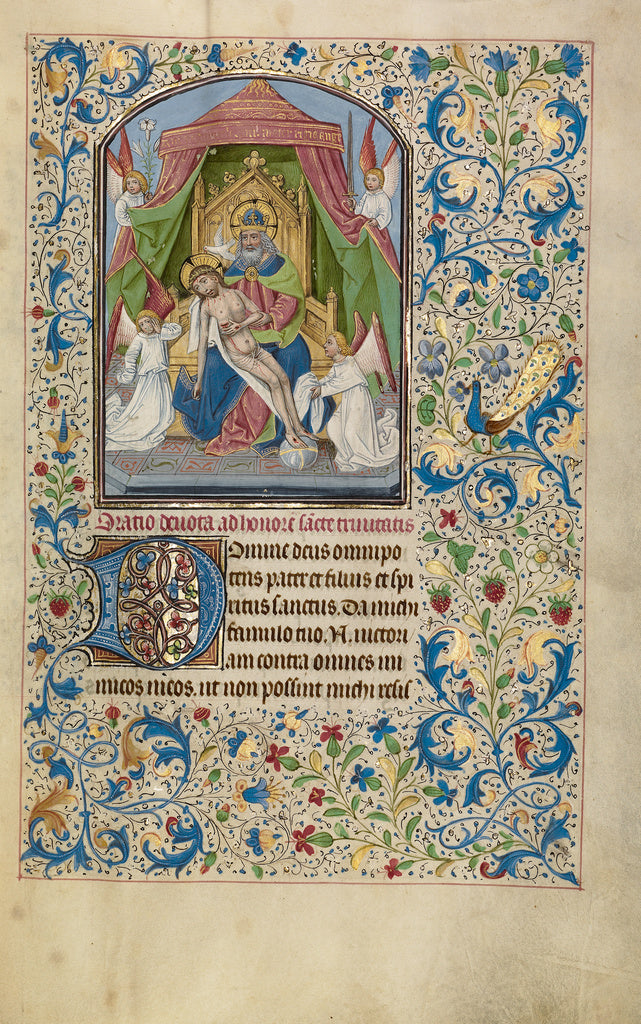 Oratio deuota ad honore sācte trinitatis
Domine deus omnipo
tens pater et filius et spi
ritus sanctus. Da michi
famulo tuo .N. uictori/
am contra omnes ini
micos meos. ut non possint michi resis